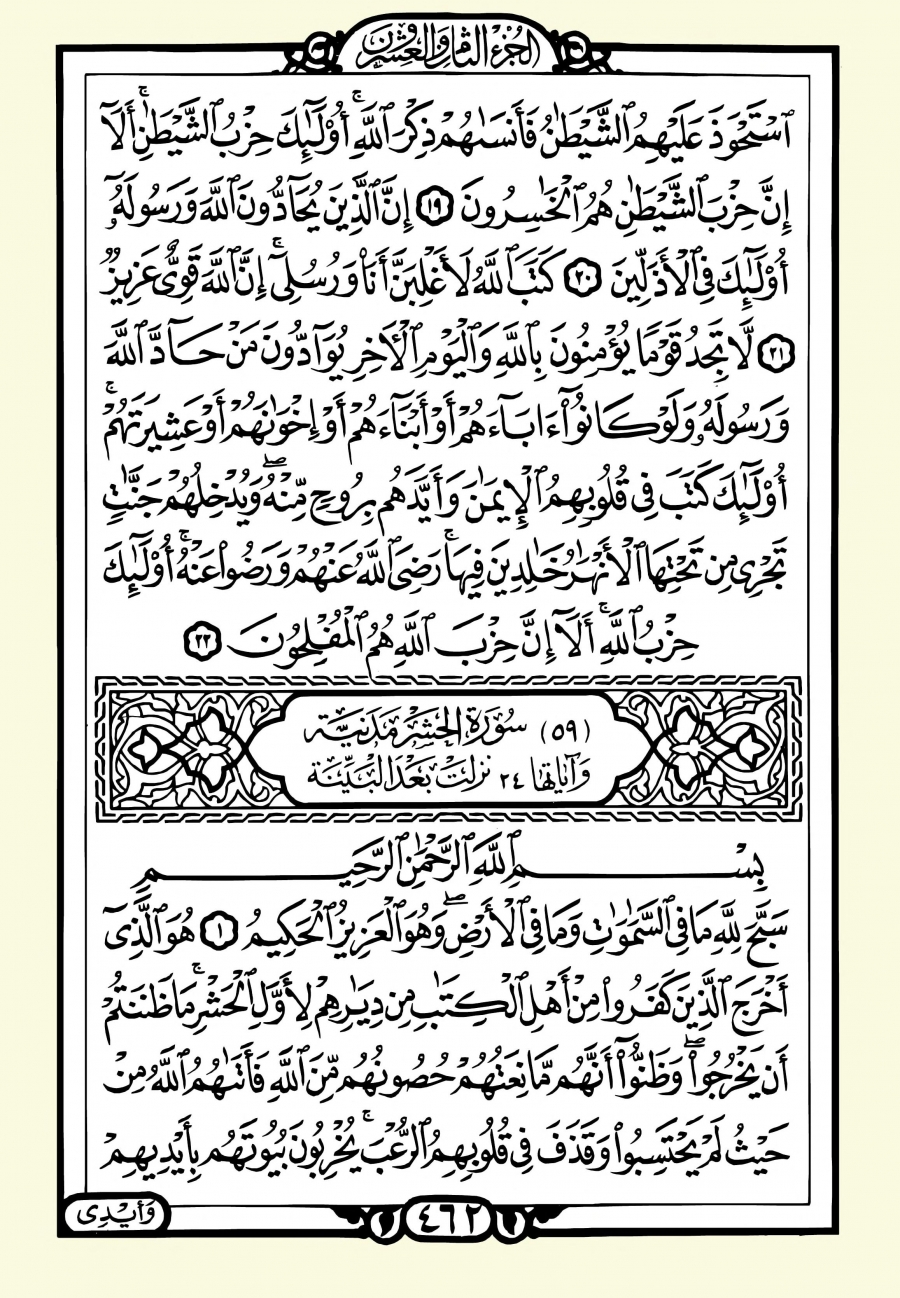 الجزء الثامن والعشرون
ٱسْتَحْوَذَ عَلَيْهِمُ ٱلشَّيْطَٰنُ فَأَنسَىٰهُمْ ذِكْرَ ٱللَّهِ ۚ أُو۟لَٰٓئِكَ حِزْبُ ٱلشَّيْطَٰنِ ۚ أَلَآ
إِنَّ حِزْبَ ٱلشَّيْطَٰنِ هُمُ ٱلْخَٰسِرُونَ ١٩ إِنَّ ٱلَّذِينَ يُحَآدُّونَ ٱللَّهَ وَرَسُولَهُۥٓ
أُو۟لَٰٓئِكَ فِى ٱلْأَذَلِّينَ ٢٠ كَتَبَ ٱللَّهُ لَأَغْلِبَنَّ أَنَا۠ وَرُسُلِىٓ ۚ إِنَّ ٱللَّهَ قَوِىٌّ عَزِيزٌ
٢١ لَّا تَجِدُ قَوْمًا يُؤْمِنُونَ بِٱللَّهِ وَٱلْيَوْمِ ٱلْأَخِرِ يُوَآدُّونَ مَنْ حَآدَّ ٱللَّهَ
وَرَسُولَهُۥ وَلَوْ كَانُوٓا۟ ءَابَآءَهُمْ أَوْ أَبْنَآءَهُمْ أَوْ إِخْوَٰنَهُمْ أَوْ عَشِيرَتَهُمْ ۚ
أُو۟لَٰٓئِكَ كَتَبَ فِى قُلُوبِهِمُ ٱلْإِيمَٰنَ وَأَيَّدَهُم بِرُوحٍ مِّنْهُ ۖ وَيُدْخِلُهُمْ جَنَّٰتٍ
تَجْرِى مِن تَحْتِهَا ٱلْأَنْهَٰرُ خَٰلِدِينَ فِيهَا ۚ رَضِىَ ٱللَّهُ عَنْهُمْ وَرَضُوا۟ عَنْهُ ۚ أُو۟لَٰٓئِكَ
حِزْبُ ٱللَّهِ ۚ أَلَآ إِنَّ حِزْبَ ٱللَّهِ هُمُ ٱلْمُفْلِحُونَ ٢٢
(٥٩) سُورَة الحَشر مَدَنيّة
وَآياتها ٢٤ نزلت بَعدَ البَيّنة
بِسْمِ ٱللَّهِ ٱلرَّحْمَٰنِ ٱلرَّحِيمِ
سَبَّحَ لِلَّهِ مَا فِى ٱلسَّمَٰوَٰتِ وَمَا فِى ٱلْأَرْضِ ۖ وَهُوَ ٱلْعَزِيزُ ٱلْحَكِيمُ ١ هُوَ ٱلَّذِىٓ
أَخْرَجَ ٱلَّذِينَ كَفَرُوا۟ مِنْ أَهْلِ ٱلْكِتَٰبِ مِن دِيَٰرِهِمْ لِأَوَّلِ ٱلْحَشْرِ ۚ مَا ظَنَنتُمْ
أَن يَخْرُجُوا۟ ۖ وَظَنُّوٓا۟ أَنَّهُم مَّانِعَتُهُمْ حُصُونُهُم مِّنَ ٱللَّهِ فَأَتَىٰهُمُ ٱللَّهُ مِنْ
حَيْثُ لَمْ يَحْتَسِبُوا۟ وَقَذَفَ فِى قُلُوبِهِمُ ٱلرُّعْبَ ۚ يُخْرِبُونَ بُيُوتَهُم بِأَيْدِيهِمْ
وَأَيْدِى
٤٦٢